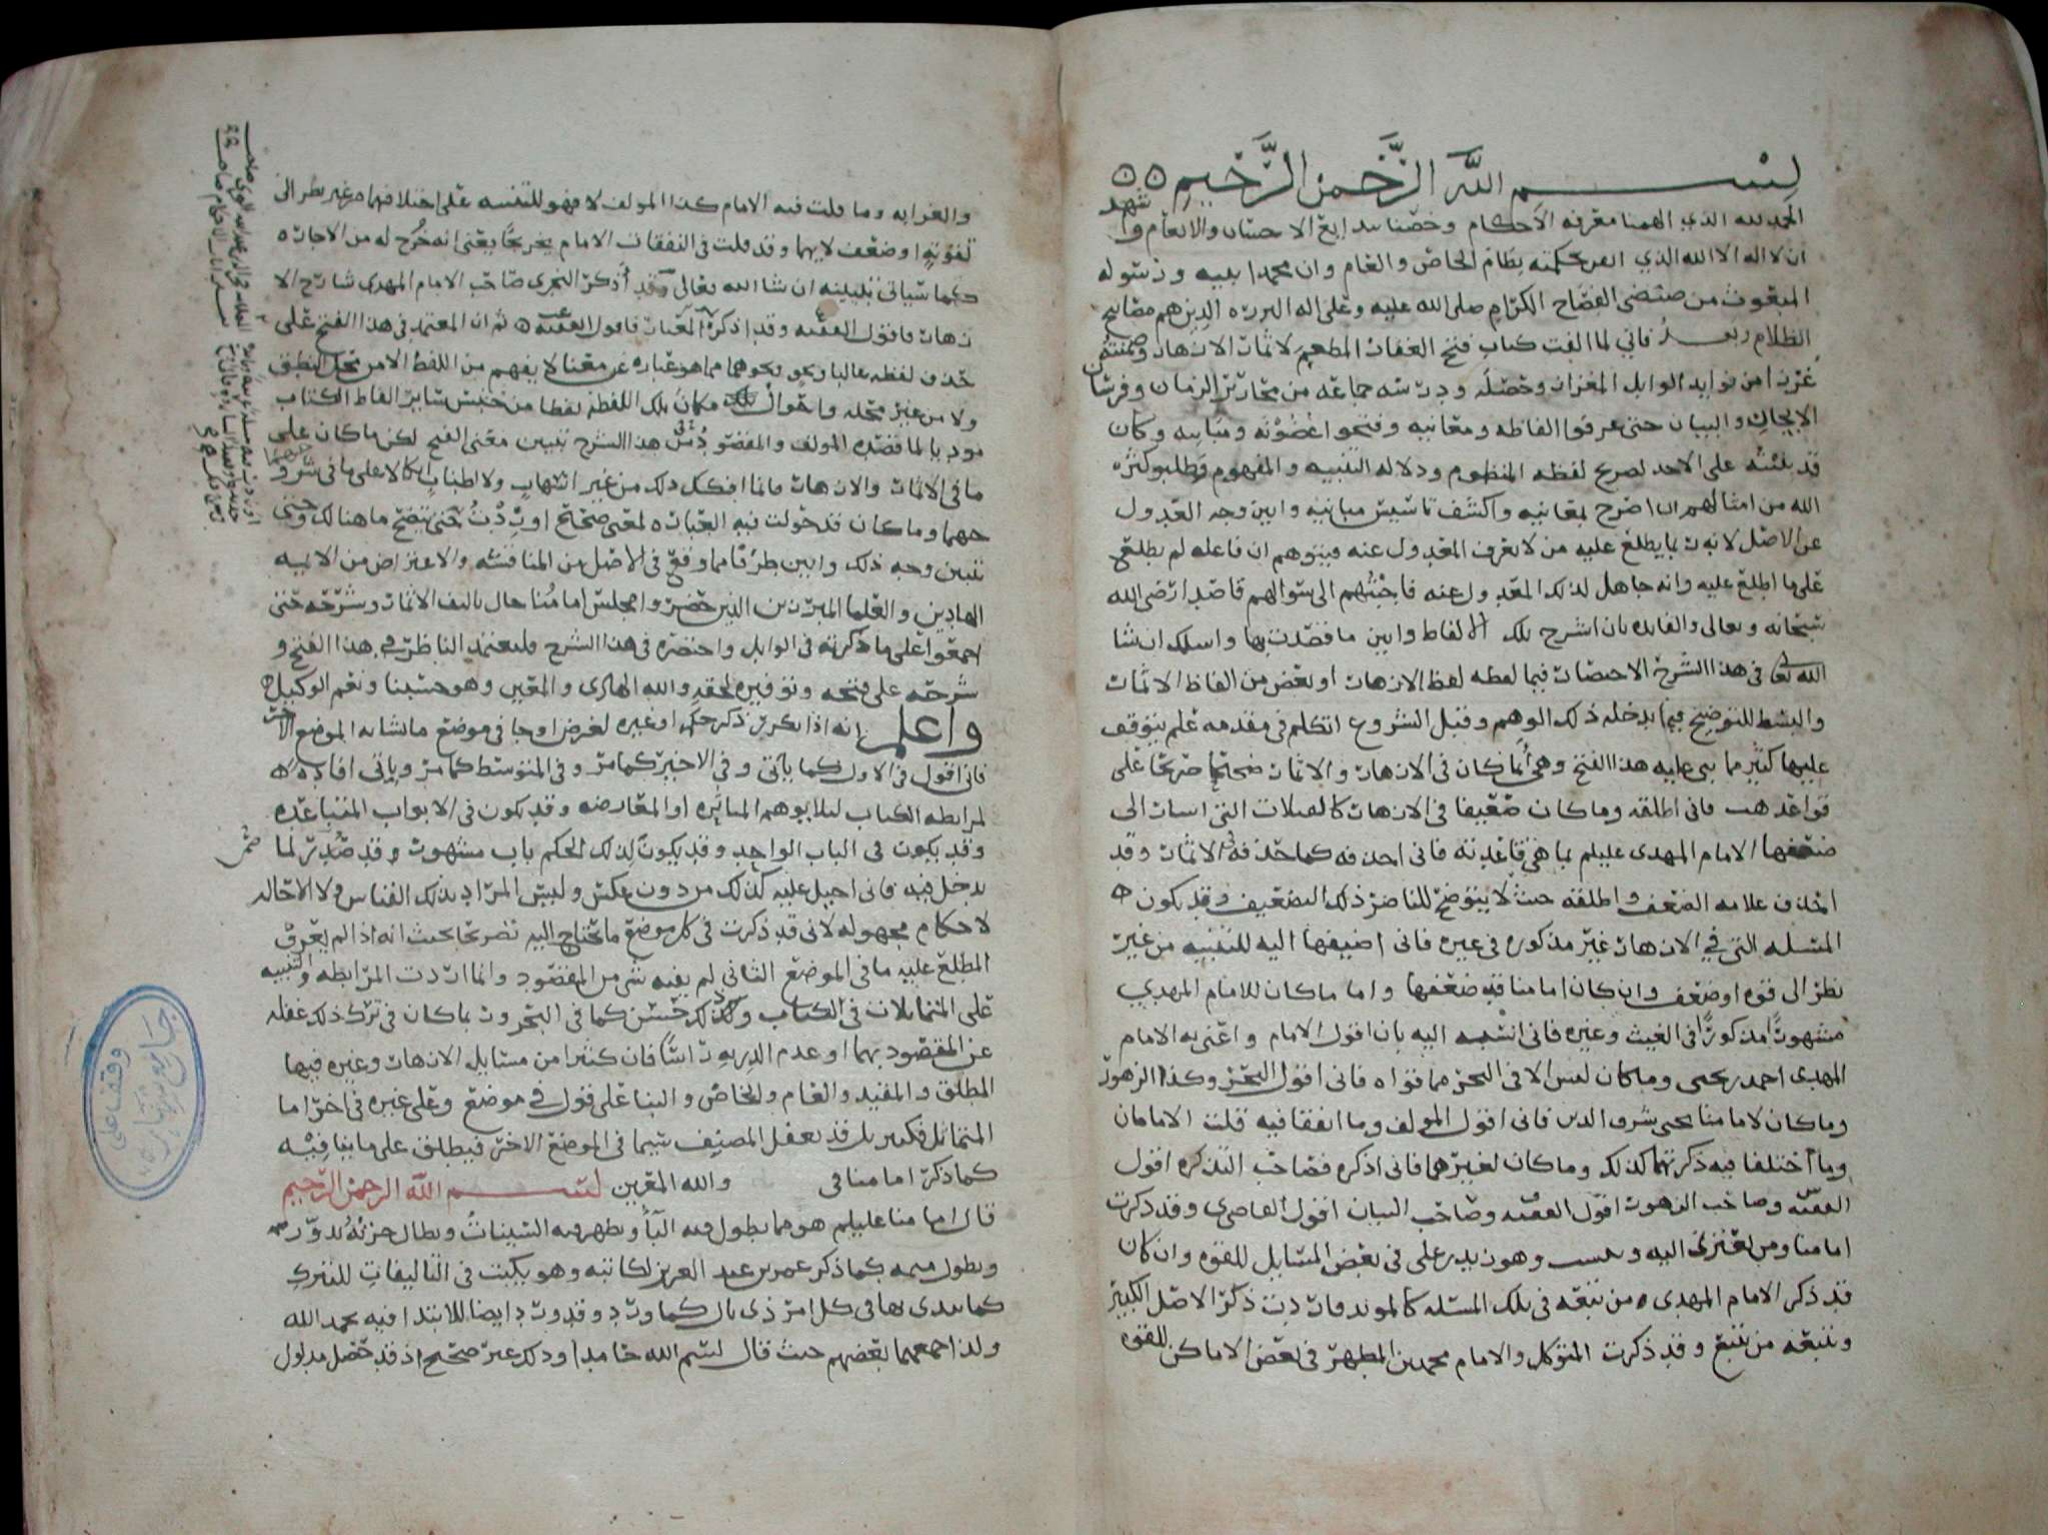 بسم الله الرحمن الرحيم
الحمد لله الذي الهمنا معرفة الأحكام وخصنا ببدايع الاحسان والانعام واشهد
ان لا اله الا الله الذي بحكمته نظام الخاص والعام وان محمدا نبيه ورسوله
المبعوث من صئضئ الفصاح الكرام صلى الله عليه وعلى اله البررة الذين هم مصابيح
الظلام وبعد فاني لما الفت كتاب فتح الغفار المطعم لاثمار الازهار وضمنته
غررا من فوايد الوابل المغزار وحصله ودرسه جماعة من نحارير الزمان وفرسان
الايجاز والبيان حتى عرفوا الفاظه ومعانيه وفتحوا غصونه ومبانيه وكان
قد بنيته على الاحد لصريح لفظه المنظوم ودلاله التنبيه والمفهوم وطلبو كثره
الله من امثالهم ان اصرح بمعانيه واكشف تاسيس مبانيه وابين وجه العدول
عن الاصل لانه ربما يطلع عليه من لا يعرف المعدول عنه فيتوهم ان فاعله لم يطلع
على ما اطلع عليه وانه جاهل لذلك المعدول عنه فاجبتهم الى سوالهم قاصدا رضى الله
سبحانه وتعالى والفايده بان اشرح تلك الالفاظ وابين ما قصدت بها واسلك ان شا
الله تعالى في هذا الشرح الاختصار فيما لفظه لفظ الازهار او بعض من الفاظ الاثمار
والبسط للتوضيح فيما يدخله ذلك الوهم وقبل الشروع اتكلم في مقدمه علم يتوقف
عليها كثير مما بني عليه هذا الفتح وهي أنما كان في الازهار والاثمار صحيحا صريحا على
قواعدهم فاني اطلقه وما كان ضعيفا في الازهار كالصلات التي اشار الى
ضعفها الامام المهدى عليلم بما هي قاعدته فاني احذفه كما حذفه في الاثمار وقد
احذف علامه الضعف واطلقه حيث لا يتوضح للناضر ذلك التضعيف وقد يكون
المسله التي في الازهار غير مذكوره في غيره فاني اضيفها اليه للتنبيه من غير
نظر الى قوه او ضعف وان كان امامنا قد ضعفها واما ما كان للامام المهدي
مشهورًا مذكورًا في الغيث وغيره فاني انسبه اليه بان اقول الامام واعني به الامام
المهدى احمد بن يحيى وما كان ليس الا في البحر مما قواه فاني اقول البحر وكذا الزهور
وما كان لامامنا يحيى شرف الدين فاني اقول المولف وما اتفقا فيه قلت الامامان
وما اختلفا فيه ذكرتهما كذلك وما كان لغيرهما فاني اذكره فصاحب التذكره اقول
الفقيه وصاحب الزهور اقول الفقيه وصاحب البيان اقول القاضي وقد ذكرت
امامنا ومن يعتزى اليه وهو زيد بن على في بعض المسايل للقوه وان كان
قد ذكر الامام المهدى من تبعه في تلك المسئلة كالمويد فان ذكر الاصل الكبير
وتتبعه من تتبع وقد ذكرت المتوكل والامام محمد بن المطهر في بعض الاماكن للقوه
والغرابه وما قلت فيه الامام كذا المولف لا فهو للتنبيه على اختلافهما من غير نظر الى
لقوته او ضعف لايهما وقد قلت في النفقات الامام تخريجًا يعني انه خُرج له من الاجاره
كما سياتي تبيينه ان شا الله تعالى وقد أذكر النجرى صاحب الامام المهدى شارح الا
زهار فاقول الفقيه وقد اذكر المعيار فاقول الفقيه ثم ان المعتمد في هذا الفتح على
حذف لفظه غالبا ونحو ونحوهما مما هو عباره عن معنا لا يفهم من اللفظ الا من محل النطق
ولا من غير محله واحوال تلك مكان تلك اللفظه لفظا من جنس ساير الفاظ الكتاب
موديا لما قصده المولف والمقصود في هذا الشرح تبيين معنى الفتح لكن ما كان على
ما في الاثمار والازهار فانما افعل ذلك من غير اسهاب ولا اطناب اتكالا على ما في شروحهما
وما كان قد حولت فيه العباره لمعنى صحيح اوردت حتى يتضح ما هنالك وحتى
تتبين وجه ذلك وابين طرفا مما وقع في الاصل من المنافسه والاعتراض من الايمه
الهادين والعلما المبرزين الذين حضروا مجلس امامنا حال تاليف الاثمار وشرحه حتى
اجمعوا على ما ذكرته في الوابل واختصره في هذا الشرح فليعتمد الناظر في هذا الفتح و
شرحه على صحته وتوفيره لحقه والله الهادى والمعين وهو حسبنا ونعم الوكيل
واعلم انه اذا تكرر ذكر حكم او غيره لغرض اوجا في موضع ما يشابه الموضع الاخر
فاني اقول في الاول كما ياتى وفي الاخير كما مر وفي المتوسط كما مر وياتى افاده
لمرابطه الكتاب ليلا يوهم المغايره او المعارضه وقد يكون في الابواب المتباعده
وقد يكون في الباب الواحد وقد يكون لذلك الحكم باب مشهور وقد صُدر لما
يدخل فيه فاني احيل عليه كذلك من دون عكس وليس المراد بذلك القياس ولا الاحاله
لاحكام مجهوله لاني قد ذكرت في كل موضع ما يحتاج اليه تصريحا بحيث انه اذا لم يعرف
المطلع عليه ما في الموضع الثاني لم يفته شي من المقصود وانما اردت المرابطه والتنبيه
على المتماثلات في الكتاب وذلك حسن كما في البحر وربما كان في ترك ذلك غفله
عن المقصود بهما او عدم الدربه راسًا فان كثيرا من مسايل الازهار وغيره فيها
المطلق والمقيد والعام والخاص والبنا على قول في موضع وعلى غيره في اخر اما
المتماثل فكثير بل قد يغفل المصنف شيا في الموضع الاخر فيطلق على ما ينافيه
كما ذكر امامنا في والله المعين بسم الله الرحمن الرحيم
قال امامنا عليلم هو مما يطول فيه البأ ويظهر فيه السينات ويطال جزئه يدور ميمه
ويطول ميمه كما ذكر عمر بن عبد العزيز لكاتبه وهو يكتب في التاليفات للتبرك
كما يبدى بها في كل امر ذى بال كما ورد وقد ورد ايضا للابتدا فيه بحمد الله
ولذا جمعهما بعضهم حيث قال بسم الله حامدا وذلك غير صحيح اذ قد حصل مدلول
وقف على
جامع